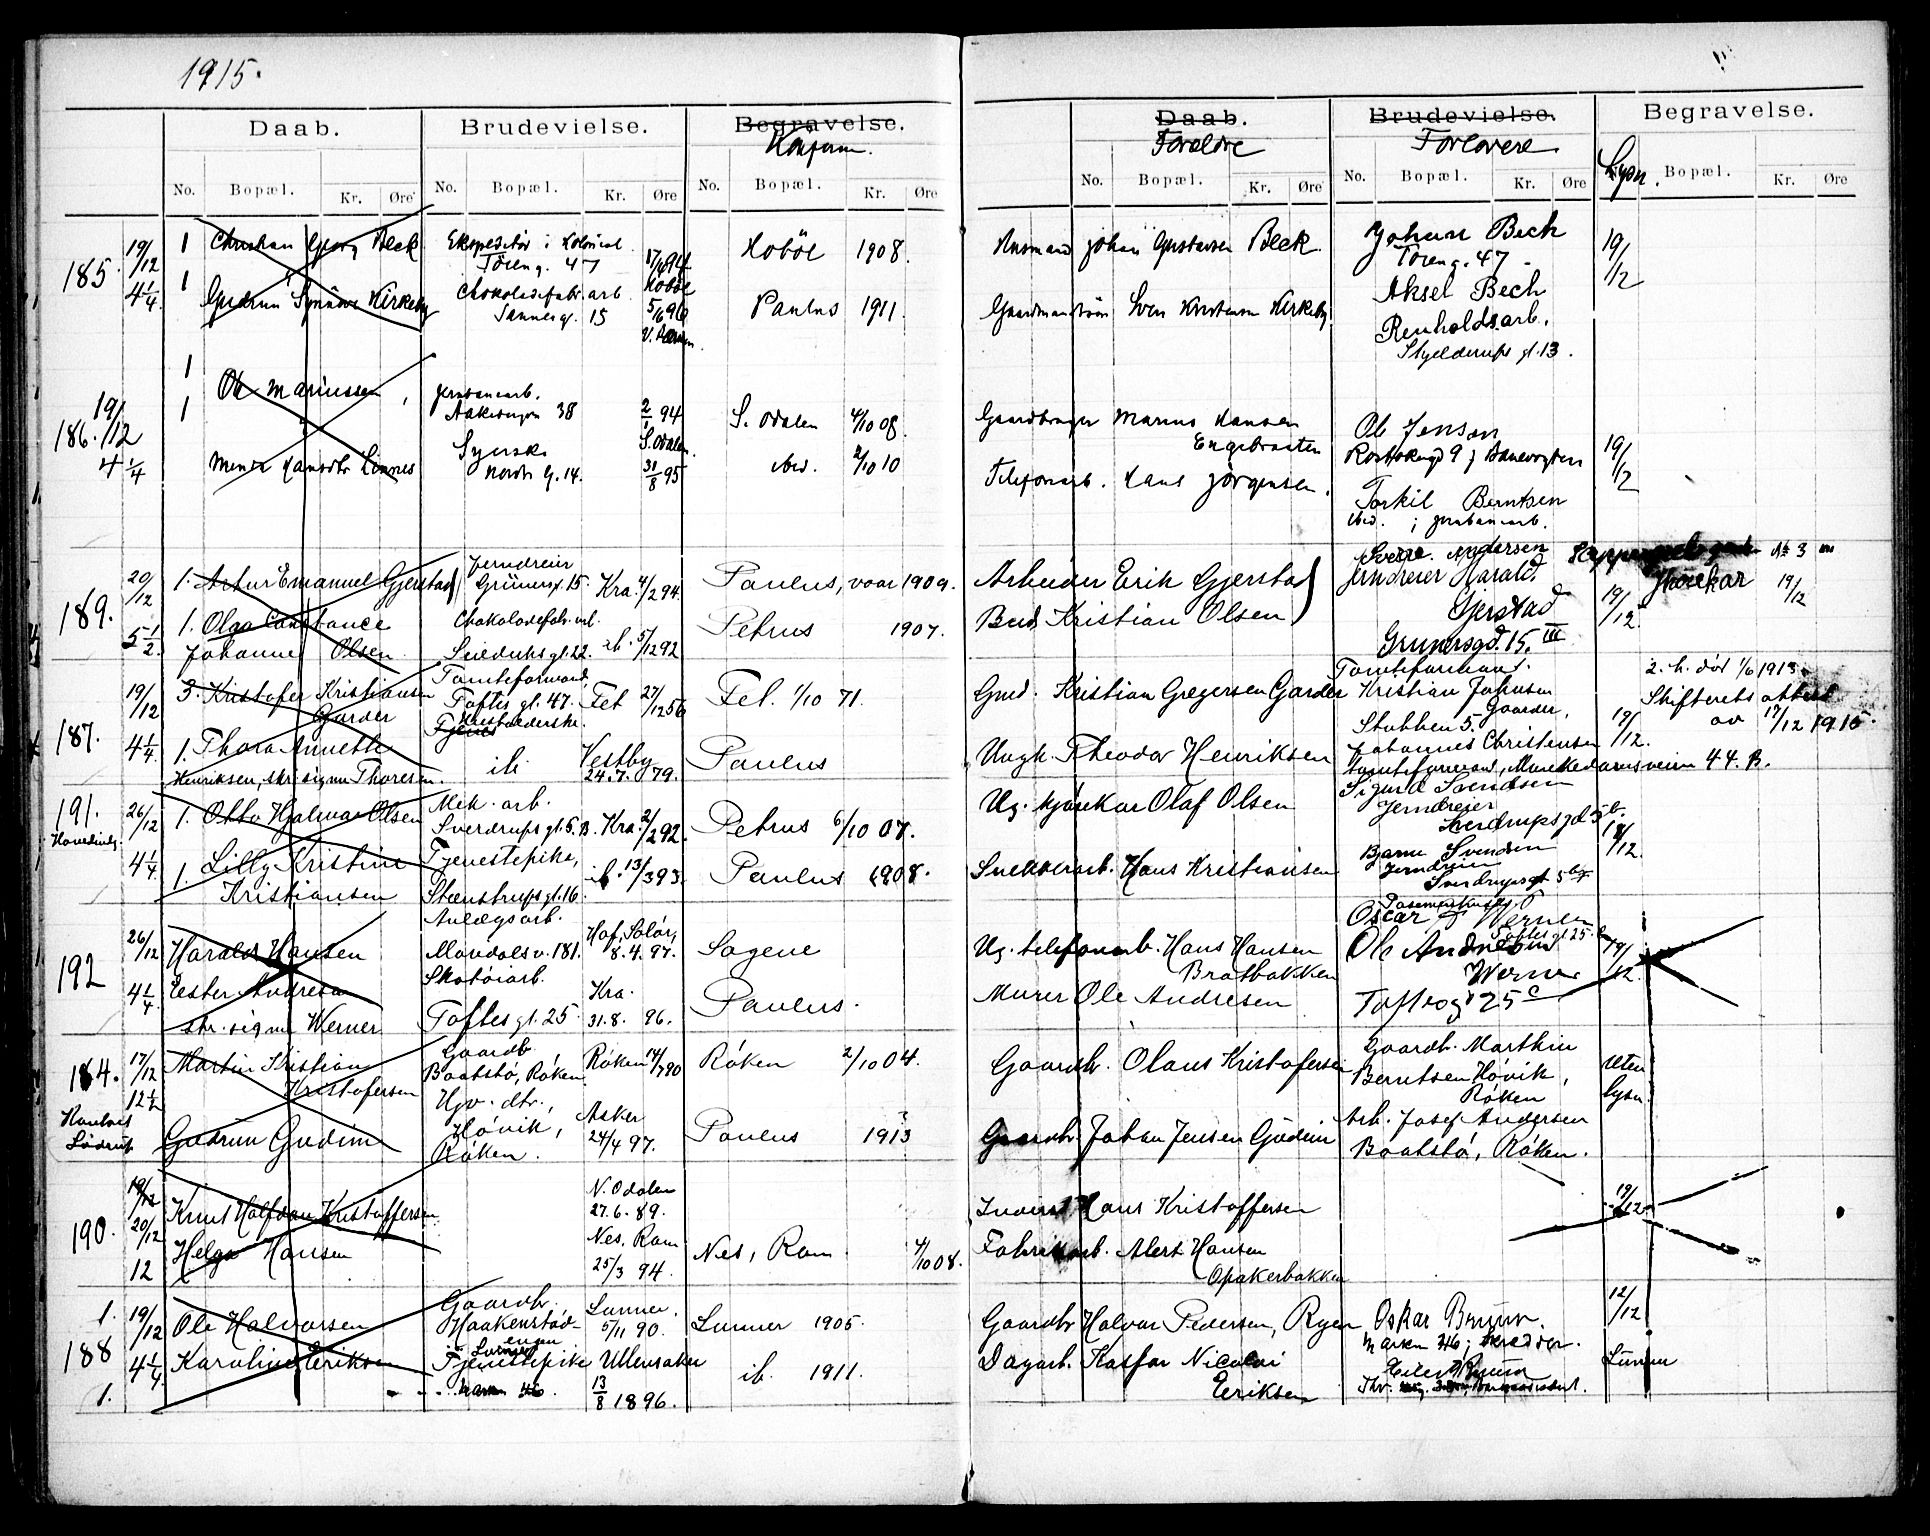 1915.
Daab. Brudevielse. Begravelse. Daab. Brudevielse. Begravelse.
Konfirm. Forældre Forlovere Lysn.
No. Bopæl. Kr. Øre No. Bopæl. Kr. Øre No. Bopæl. Kr. Øre No. Bopæl. Kr. Øre No. Bopæl. Kr. Øre Bopæl. Kr. Øre
185. 19/12 4 1/4
1 Christian Georg Beck Ekspeditør i Kolonial Töieng. 47 17/4 94 Hobøl
Hobøl 1908.
Husmand Johan Gustavsen Beck
Johan Bech
Töieng. 47
19/12
1 Gudrun Kirkeby Chokoladefabr. arb. Sannesgt. 15 5/6 96
Paulus 1911.
Gaardmand Sven Kristensen Kirkeby
Aksel Bech
Renholdsarb.
Stjelderups gt. 13.
186. 19/12 4 1/4
1 Ole Mariussen, jernbanearb. Aakebergvn 38 2/1 94 S. Odalen
S. Odalen 4/10 08.
Gaardbruger Marius Hansen
Engebraaten
Ole Jensen
19/12
1 Hansdtr Linnes Syerske Nordr g. 14. 31/8 95
ibid. 2/10 10
Telefonarb. Hans Jörgensen.
Torkil Berntsen
ibid. ; jernbanearb.
189. 20/12 5 1/2
1. Artur Emanuel Gjerstad Jerndreier Grünersgt. 15. Kra. 4/2 94.
Paulus, vaar 1909.
Arbeider Erik Gjerstad
Sverre Andersen
No 3
Jerndreier Harald Gjerstad
Grünersgd. 15. III
19/12 19/12
1. Olga Constance Johanne Olsen Chokoladefabr. arb. gt. 22. ib. 5/12 92
Petrus 1907.
Bud Kristian Olsen
187. 19/12 4 1/4
3. Kristofer Kristiansen Garder Tomteformand, Toftes gt. 47. Fet 27/12 56
Fet. 1/10 71.
Gmd. Kristian Gregersen Garder
Tomteformand.
Kristian Johnsen
Gaarder,
Stubben 5.
19/12.
2. h. död 1/6 1913.
Skifterets attest
av 17/12 1915.
1. Thora Annette Henriksen, skr. sig nu Thoresen. ib. Vestby 24.7.79.
Paulus
Ungk. Theodor Henriksen
Johannes Christensen
Tomteformand, Munkedamsveien 44. B.
191. 26/12 4 1/4
1. Otto Hjalmar Olsen Mek. arb. Sverdrups gt. 5. B. Kra. 2/2 92.
Petrus 6/10 07.
Ug. kjørekar Olaf Olsen
Sigurd Svendsen
Jerndreier
Sverdrupsgd 5 b.
18/12.
1. Lilly Kristine Kristiansen Tjenestepike, Steenstrups gt. 16. ib. 13/3 93.
Paulus 1908.
Snekkerarb. Hans Kristiansen
Bjarne Svendsen
Jerndreier
Sverdrupsgt 5 b
192 26/12 4 1/4
Harald Hansen Anlægsarb. Maridalsv. 181. Hof, Solör, 8.4.97.
Sagene
Ug. telefonarb. Hans Hansen
Bratbakken
Oscar Werner
Toftes gt 25.
19/12
Ester Andresen skr. sig nu Werner Skotöiarb. Toftes gt. 25. Kra. 31.8.96.
Paulus.
Murer Ole Andresen
Ole Andresen
Werner
Toftesgt 25 c
184. 17/12 12 1/2
Martin Kristian Kristofersen Gaardb. Baatstø, Røken Røken 14/7 90
Røken 2/10 04.
Gaardb. Olaus Kristofersen
Gaardb. Marthin
Berntsen Høvik,
Røken
Uten lysn.
Gudrun Gudim Hjv. dtr., Høvik, Røken. Asker 24/4 97.
Paulus 1913
Gaardb. Johan Jensen Gudim
Arb. Josef Andersen
Baatstø, Røken.
190. 19/12 20/12 12
Knut Halfdan Kristoffersen N. Odalen 27.6.89.
Hans Kristoffersen
19/12
Helga Hansen Nes, Rom. 25/3 94.
Nes, Rom. 4/10 08.
Fabrikarb. Alert Hansen
Opakerbakken
188 1. 19/12 4 1/4 1.
Ole Halvorsen Gaardbr. Haakenstad- engen Lunner Lunner. 5/11 90.
Lunner 1905.
Gaardbr Halvor Pedersen, Ryen
Oskar Bruun.
Marken 46, skrædder.
12/12
Lunner
Karoline Eriksen Tjenestepike Marken 46 Ullensaker 13/8 1896.
ib. 1911.
Dagarb. Kasfar Nicolai
Eriksen
Bruun